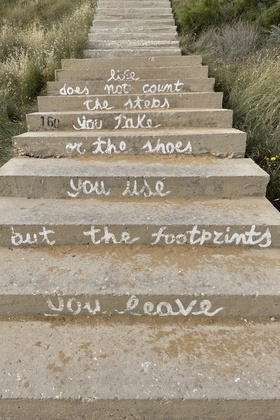 life
does not count
the steps
160 you take
or the shoes
you use
but the footprints
you leave